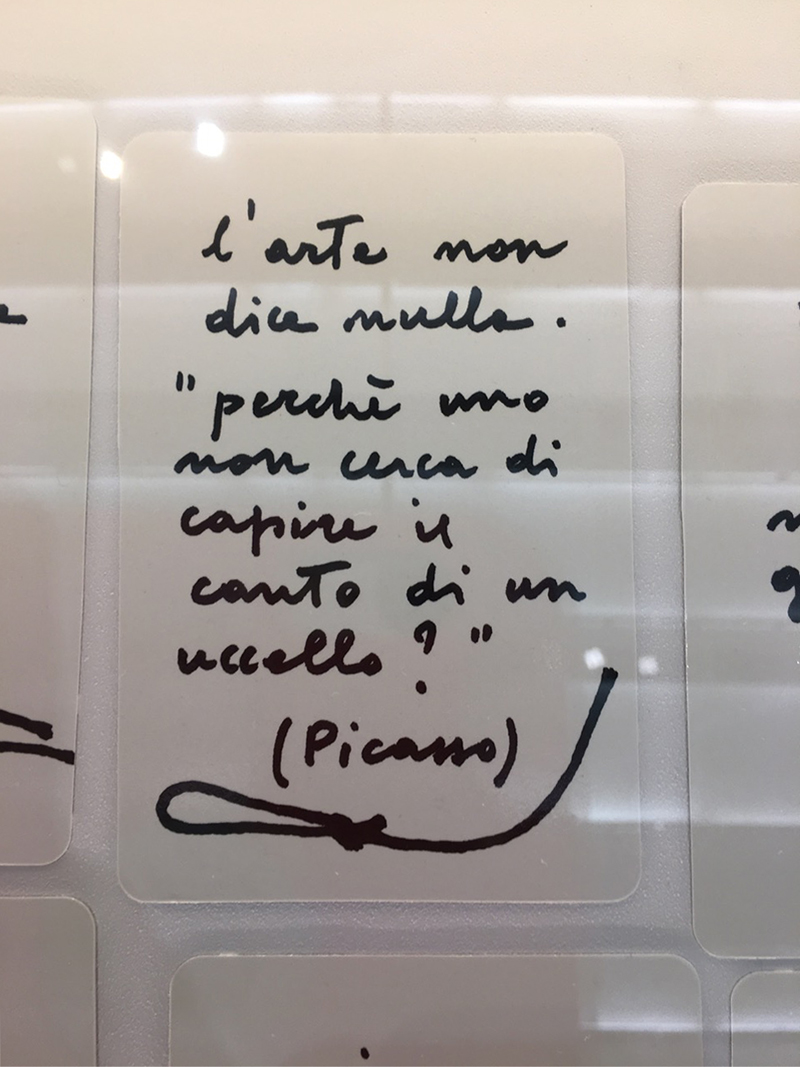 l'arte non
dice nulla.
"perchè uno
non cerca di
capire il
canto di un
uccello?"
(Picasso)